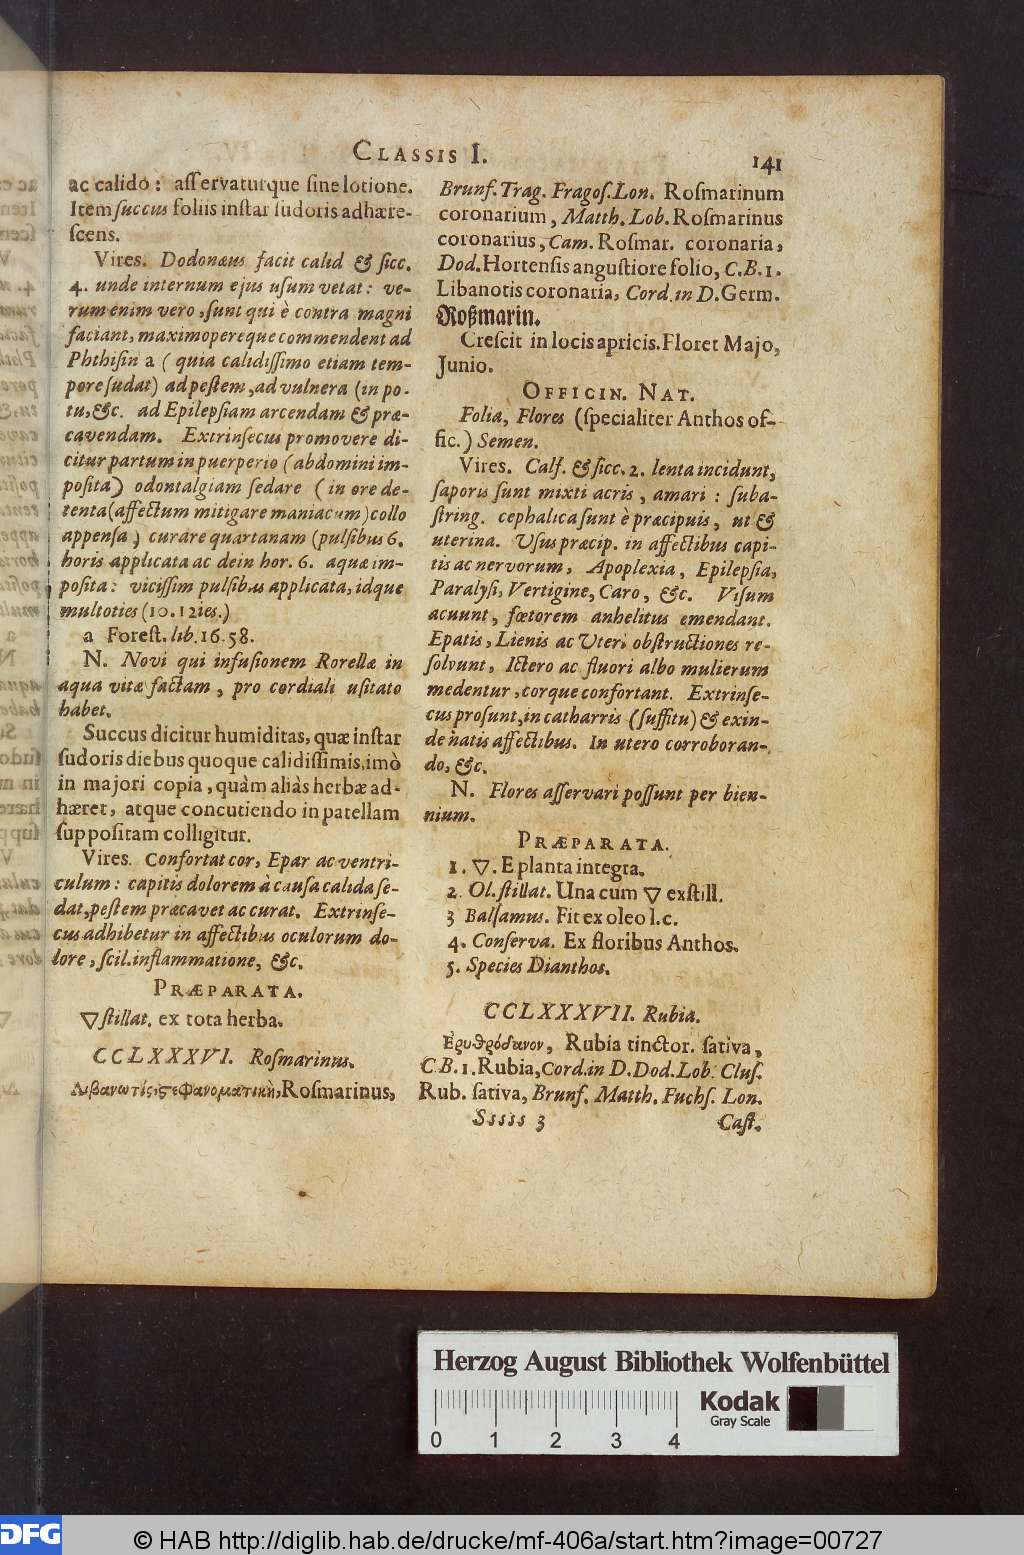 CLASSIS I.
141
ac calido: aſſervaturque ſine lotione.
Item ſuccus foliis inſtar ſudoris adhære-
ſcens.
Vires. Dodonæus facit calid & ſicc.
4. unde internum ejus uſum vetat: ve-
rum enim vero, ſunt qui è contra magni
faciant, maximopereque commendent ad
Phthiſin a (quia calidiſſimo etiam tem-
pore ſudat) ad peſtem, ad vulnera (in po-
tu, &c. ad Epilepſiam arcendam & præ-
cavendam. Extrinſecus promovere di-
citur partum in puerperio (abdomini im-
poſita) odontalgiam ſedare (in ore de-
tenta (affectum mitigare maniacum) collo
appenſa) curare quartanam (pulſibus 6.
horis applicata ac dein hor. 6. aquæ im-
poſita: viciſſim pulſibus applicata, idque
multoties (10. 12ies.)
a Foreſt. lib. 16. 58.
N. Novi qui infuſionem Rorellæ in
aqua vitæ factam, pro cordiali uſitato
habet.
Succus dicitur humiditas, quæ inſtar
ſudoris diebus quoque calidiſſimis, imò
in majori copia, quàm aliàs herbæ ad-
hæret, atque concutiendo in patellam
ſuppoſitam colligitur.
Vires. Confortat cor, Epar ac ventri-
culum: capitis dolorem à cauſa calida ſe-
dat, peſtem præcavet ac curat. Extrinſe-
cus adhibetur in affectibus oculorum do-
lore, ſcil. inflammatione, &c.
PRÆPARATA.
▽ ſtillat. ex tota herba.
CCLXXXVI. Roſmarinus.
Λιβανωτίς ςεφανοματικὴ, Roſmarinus,
Brunf. Trag. Fragoſ. Lon. Roſmarinum
coronarium, Matth. Lob. Roſmarinus
coronarius, Cam. Roſmar. coronaria,
Dod. Hortenſis anguſtiore folio, C. B. 1.
Libanotis coronaria, Cord. in D. Germ.
Roßmarin.
Creſcit in locis apricis. Floret Majo,
Junio.
OFFICIN. NAT.
Folia, Flores (ſpecialiter Anthos of-
fic.) Semen.
Vires. Calf. & ſicc. 2. lenta incidunt,
ſaporis ſunt mixti acris, amari: ſuba-
ſtring. cephalica ſunt è præcipuis, ut &
uterina. Uſus præcip. in affectibus capi-
tis ac nervorum, Apoplexia, Epilepſia,
Paralyſi, Vertigine, Caro, &c. Viſum
acuunt, fœtorem anhelitus emendant.
Epatis, Lienis ac Uteri obſtructiones re-
ſolvunt, Ictero ac fluori albo mulierum
medentur, corque confortant. Extrinſe-
cus proſunt, in catharris (ſuffitu) & exin-
de natis affectibus. In utero corroboran-
do, &c.
N. Flores aſſervari poſſunt per bien-
nium.
PRÆPARATA.
1. ▽. E planta integra.
2. Ol. ſtillat. Una cum ▽ exſtill.
3 Balſamus. Fit ex oleo l. c.
4. Conſerva. Ex floribus Anthos.
5. Species Dianthos.
CCLXXXVII. Rubia.
Ἐρυθρόδανον, Rubia tinctor. ſativa,
C. B. 1. Rubia, Cord. in D. Dod. Lob. Cluſ.
Rub. ſativa, Brunf. Matth. Fuchſ. Lon.
Sssss 3
Caſt.
Herzog August Bibliothek Wolfenbüttel
Kodak
Gray Scale
0 1 2 3 4
DFG
© HAB http://diglib.hab.de/drucke/mf-406a/start.htm?image=00727